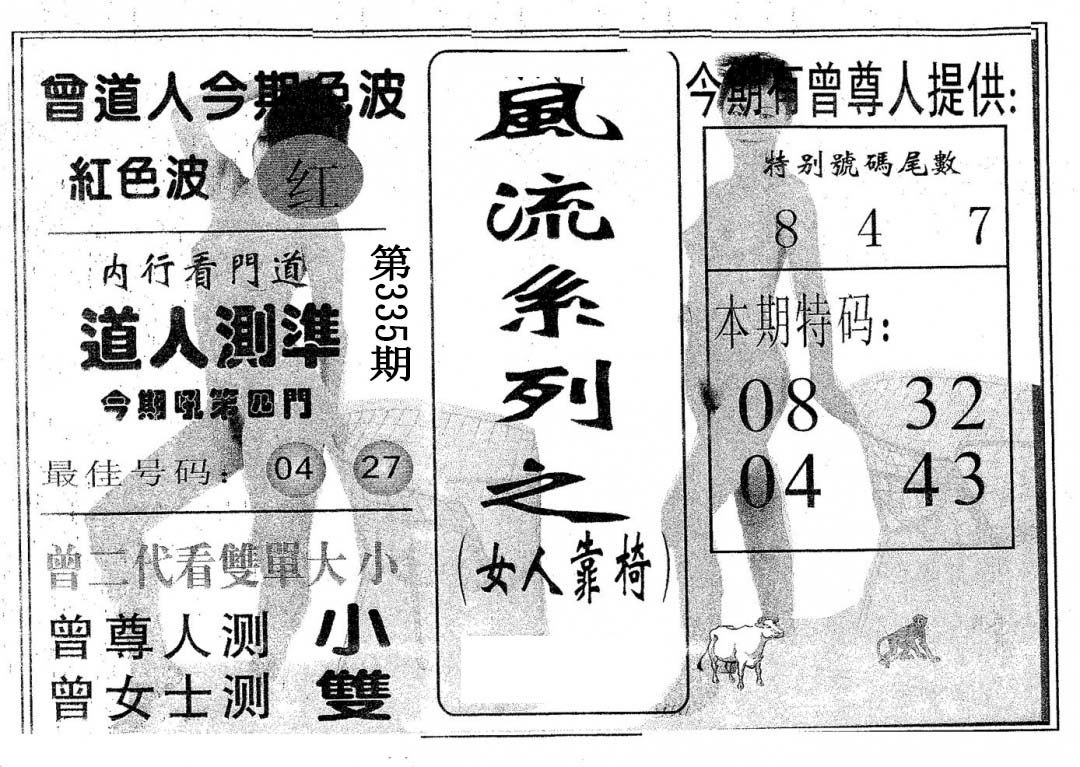 曾道人今期色波
紅色波 红
内行看門道
道人測準
今期吼第四門
最佳号码: 04 27
第335期
曾二代看雙單大小
曾尊人测 小
曾女士测 雙
風流系列之
(女人靠椅)
今期有曾尊人提供:
特别號碼尾數
8 4 7
本期特码:
08 32
04 43